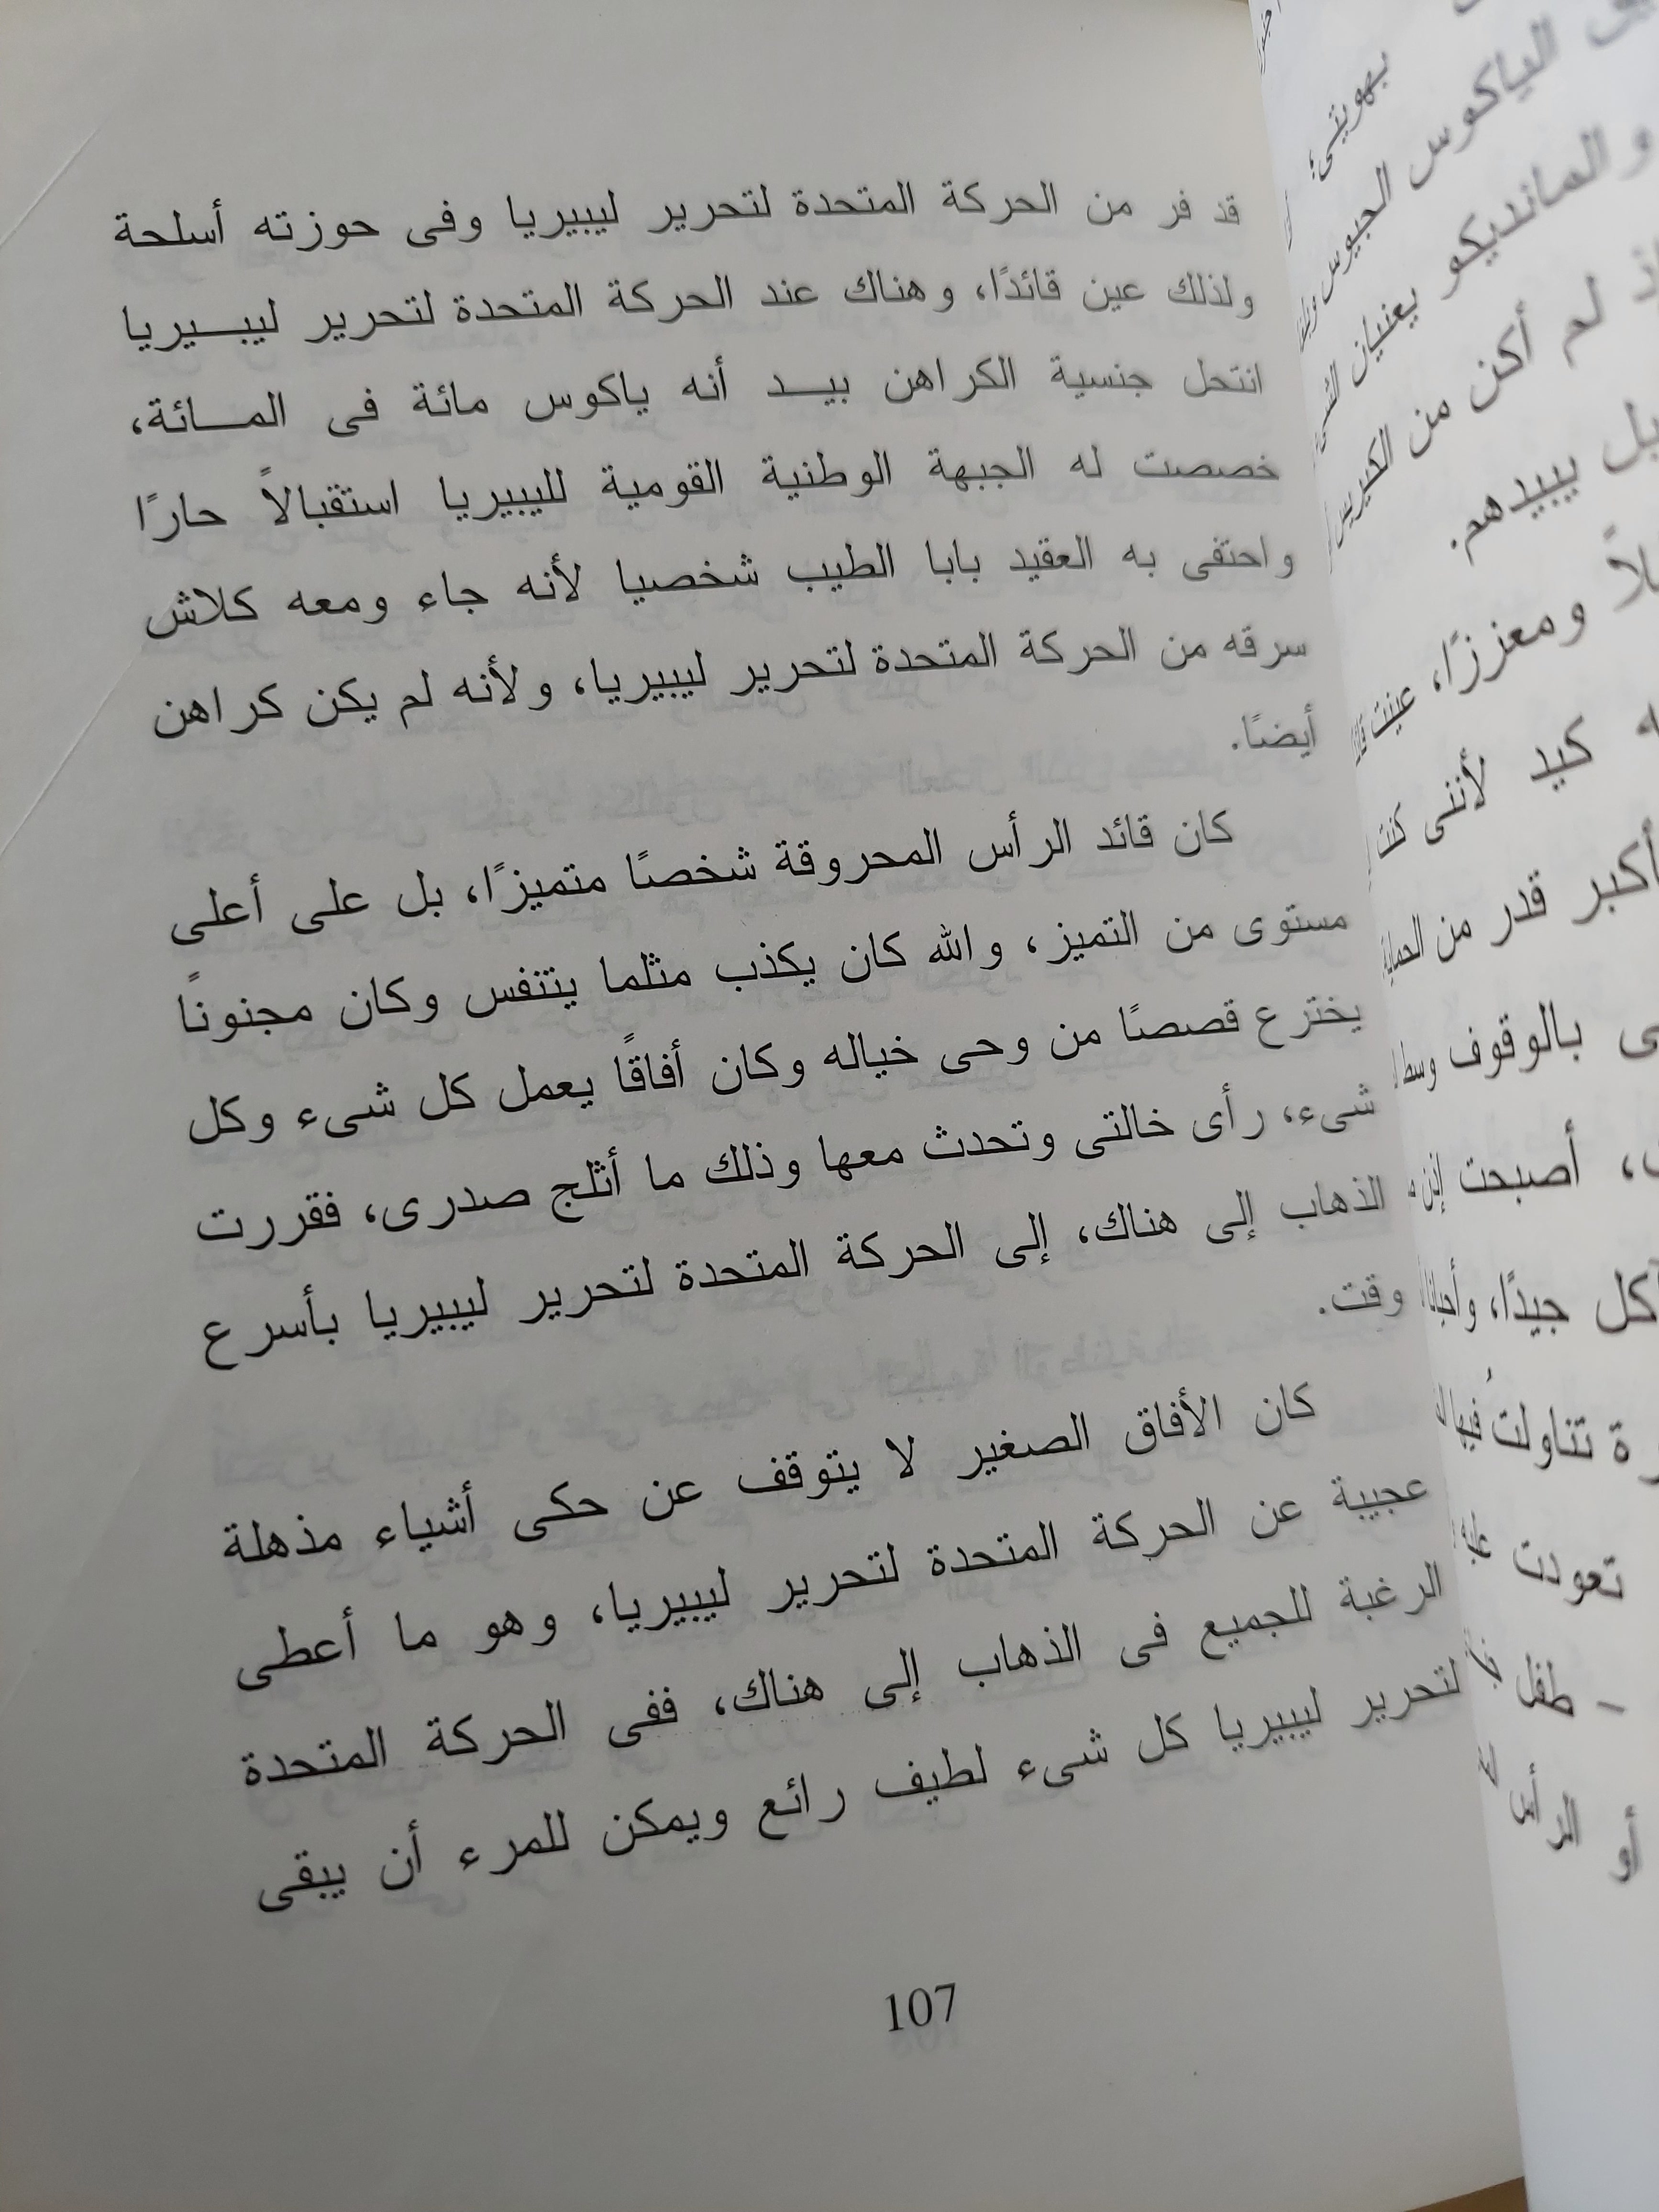 قد فر من الحركة المتحدة لتحرير ليبيريا وفى حوزته أسلحة
ولذلك عين قائدًا، وهناك عند الحركة المتحدة لتحرير ليبـــيريا
انتحل جنسية الكراهن بيـــد أنه ياكوس مائة فى المـــائة،
خصصت له الجبهة الوطنية القومية لليبيريا استقبالاً حارًا
واحتفى به العقيد بابا الطيب شخصيا لأنه جاء ومعه كلاش
سرقه من الحركة المتحدة لتحرير ليبيريا، ولأنه لم يكن كراهن
أيضًا.
كان قائد الرأس المحروقة شخصًا متميزًا، بل على أعلى
مستوى من التميز، والله كان يكذب مثلما يتنفس وكان مجنونًا
يخترع قصصًا من وحى خياله وكان أفاقًا يعمل كل شىء وكل
شىء، رأى خالتى وتحدث معها وذلك ما أثلج صدرى، فقررت
الذهاب إلى هناك، إلى الحركة المتحدة لتحرير ليبيريا بأسرع
وقت.
كان الأفاق الصغير لا يتوقف عن حكى أشياء مذهلة
عجيبة عن الحركة المتحدة لتحرير ليبيريا، وهو ما أعطى
الرغبة للجميع فى الذهاب إلى هناك، ففى الحركة المتحدة
لتحرير ليبيريا كل شىء لطيف رائع ويمكن للمرء أن يبقى
107
بهويتى؛
الياكوس الجيوس
والمانديكو يعنيان
لم أكن من الكيرس
بل يبيدهم.
ومعززًا، عينت
كيد لأننى كنت
أكبر قدر من الحماية
بالوقوف وسط
أصبحت إذن
كل جيدًا، وأحيانًا
تناولت فيها
تعودت
- طفل
أو الرأس